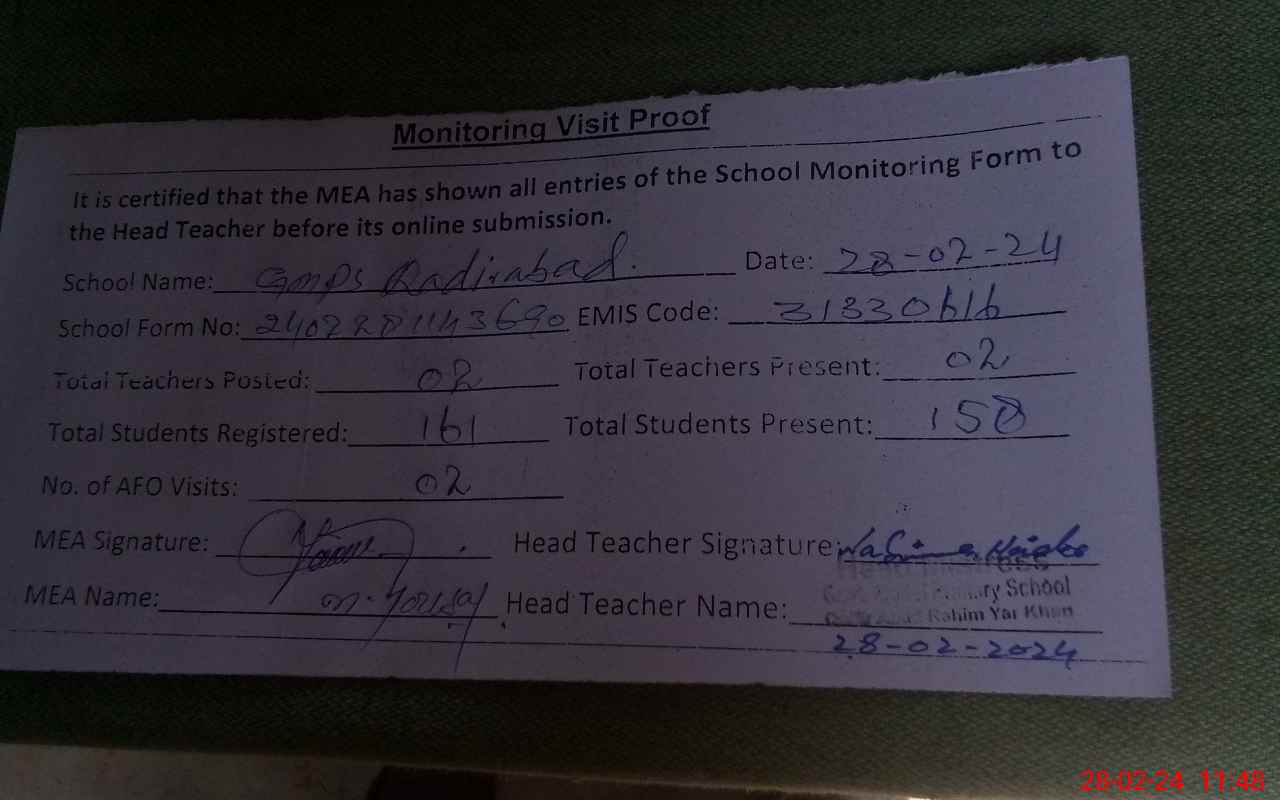 Monitoring Visit Proof
It is certified that the MEA has shown all entries of the School Monitoring Form to
the Head Teacher before its online submission.
School Name: GMPS Qadirabad. Date: 28-02-24
School Form No: 2402281143690 EMIS Code: 31330616
Total Teachers Posted: 02 Total Teachers Present: 02
Total Students Registered: 161 Total Students Present: 158
No. of AFO Visits: 02
MEA Signature: Head Teacher Signature:
MEA Name: M. Head Teacher Name:
School
Rahim Yar Khan
28-02-2024
28-02-24 11:48